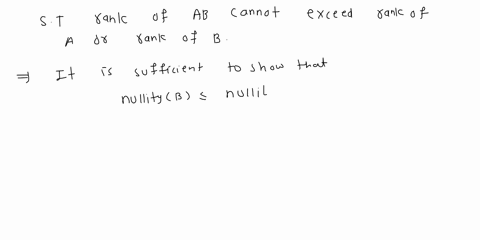 S.T rank of AB cannot exceed rank of
A or rank of B.
⇒ It is sufficient to show that
nullity(B) ≤ nullil